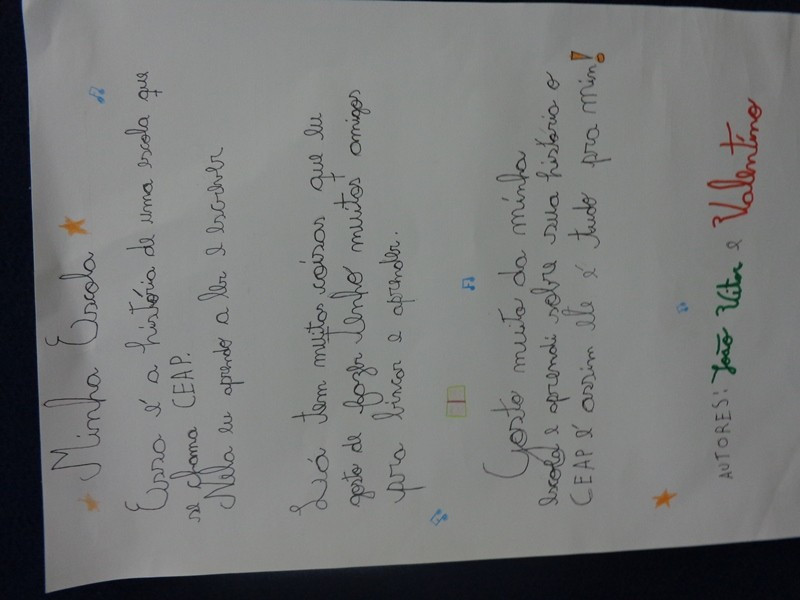 Minha Escola
Essa é a história de uma escola que
se chama CEAP.
Nela eu aprendo a ler e escrever
Lá tem muitas coisas que eu
gosto de fazer tenho muitos amigos
pra bincar e aprender.
Gosto muito da minha
escola e aprendi sobre sua história o
CEAP é assim ele é tudo pra mim!
AUTORES: João Vitor e Valentino